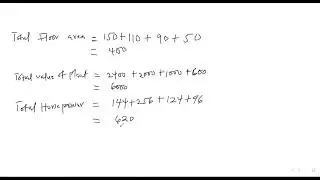 Total Floor area = 150+110+90+50
= 400
Total value of plant = 2400+2000+1000+600
= 6000
Total Horsepower = 144+256+124+96
= 620